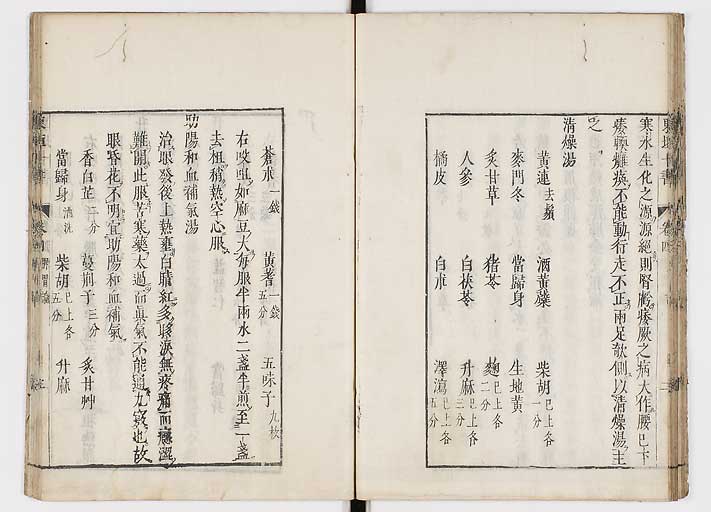 寒水生化之源源絕則腎虧痿厥之病大作腰已下
痿軟癱瘓不能動行走不正兩足欹側以清燥湯主
之
清燥湯
黃連去鬚 酒黃蘗 柴胡已上各一分
麥門冬 當歸身 生地黃
炙甘草 猪苓 麴已上各二分
人參 白茯苓 升麻已上各三分
橘皮 白朮 澤瀉已上各五分
蒼朮一錢 黃耆一錢五分 五味子九枚
右㕮咀如麻豆大每服半兩水二盞半煎至一盞
去柤稍熱空心服
助陽和血補氣湯
治眼發後上熱壅白睛紅多眵淚無疼痛而癮澀
難開此服苦寒藥太過而眞氣不能通九竅也故
眼昏花不明宜助陽和血補氣
香白芷二分 蔓荊子三分 炙甘艸
當歸身酒洗 柴胡已上各五分 升麻